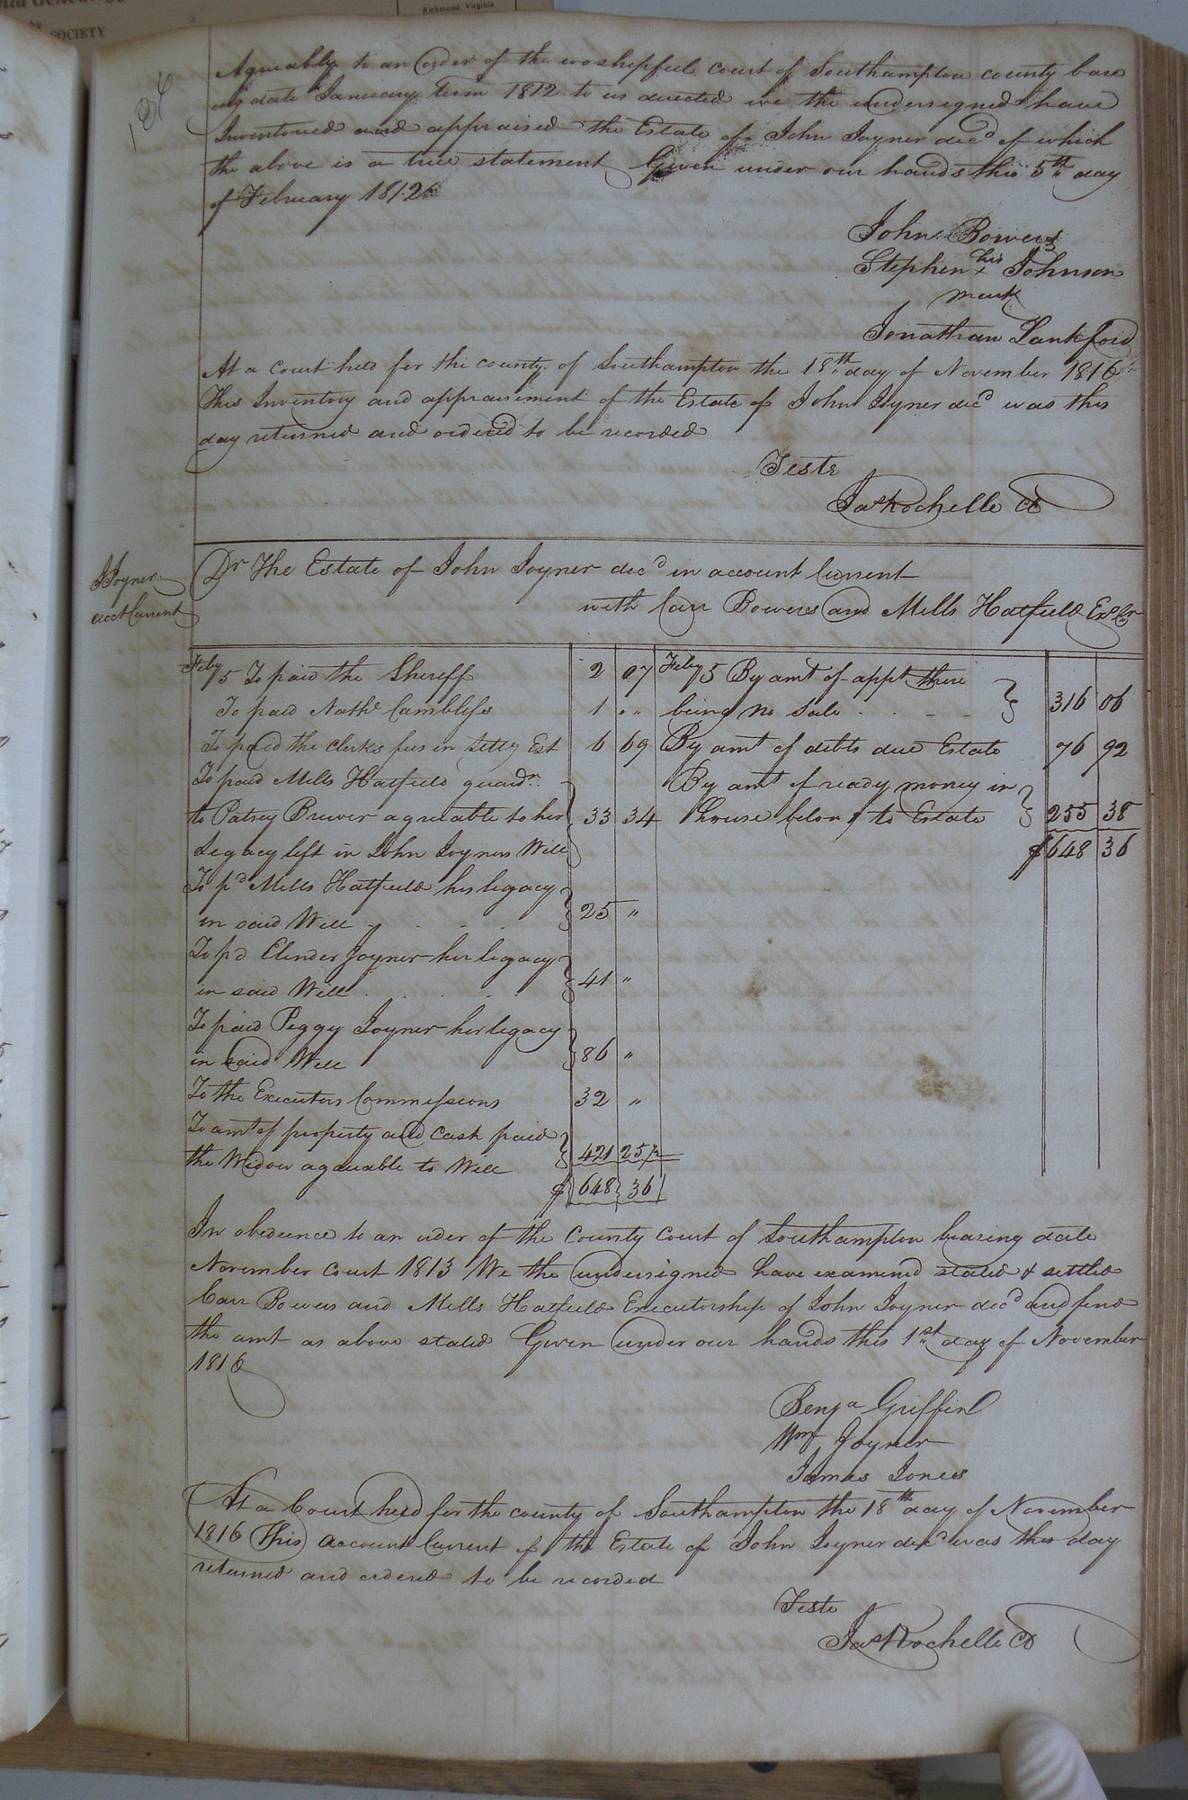 SOCIETY
Richmond, Virginia
Agreeably to an order of the worshipful court of Southampton county bare
ing date January Term 1812 to us directed we the undersigned have
Inventoried and appraised the Estate of John Joyner decd of which
the above is a true statement Given under our hands this 5th day
of February 1812
John Bowers
Stephen his x Johnson
mark
Jonathan Lankford
At a Court held for the county of Southampton the 18th day of November 1816
This Inventory and appraisement of the Estate of John Joyner decd was this
day returned and ordered to be recorded
Teste
Jas Rochelle
J Joyner
acct Current
Dr The Estate of John Joyner decd in account Current
with Carr Bowers and Mills Hatfield Exr
Feby 5 To paid the Sheriff 2 07
To paid Nathl 1 "
To paid the clerks fees in Est 6 69
To paid Mills Hatfield guardn
to Patsey Brewer agreeable to her 33 34
Legacy left in John Joyners Will
To pd Mills Hatfield his legacy
in said Will 25 "
To pd Elender Joyner her legacy
in said Will 41 "
To paid Peggy Joyner her legacy
in said Will 86 "
To the Executors Commissions 32 "
To amt of property and cash paid
the Widow agreeable to Will 421 25
$ 648 36
Feby 5 By amt of appt there
being no Sale 316 06
By amt of debts due Estate 76 92
By amt of ready money in
house belong to Estate 255 38
$ 648 36
In obedience to an order of the County Court of Southampton bearing date
November Court 1813 We the undersigned have examined stated & settled
Carr Bowers and Mills Hatfield Executorship of John Joyner decd and find
the amt as above stated Given under our hands this 1st day of November
1816
Benja Griffin
Wm Joyner
James Jones
At a Court held for the county of Southampton the 18th day of November
1816 This account Current of the Estate of John Joyner decd was this day
returned and ordered to be recorded
Teste
Jas Rochelle